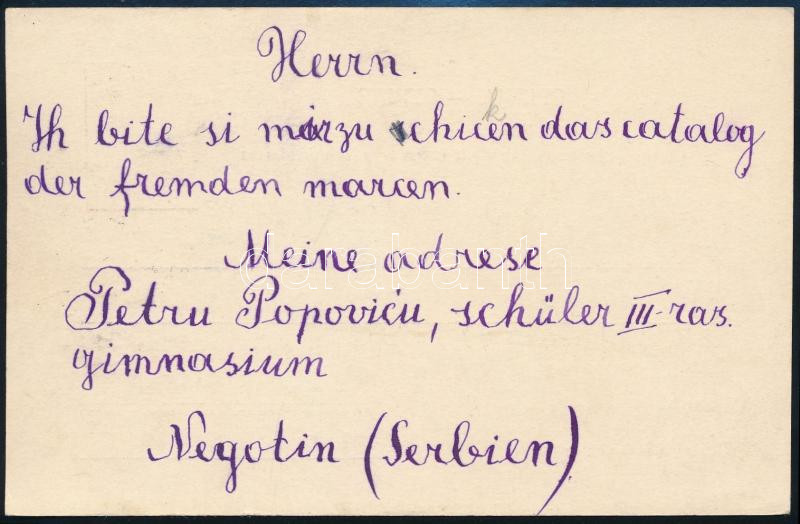 Herrn.
Ih bite si mir zu schicen das catalog
k
der fremden marcen.
Meine adrese
darabanth
Petru Popoviću, schüler III-ras.
gimnasium
Negotin (Serbien)